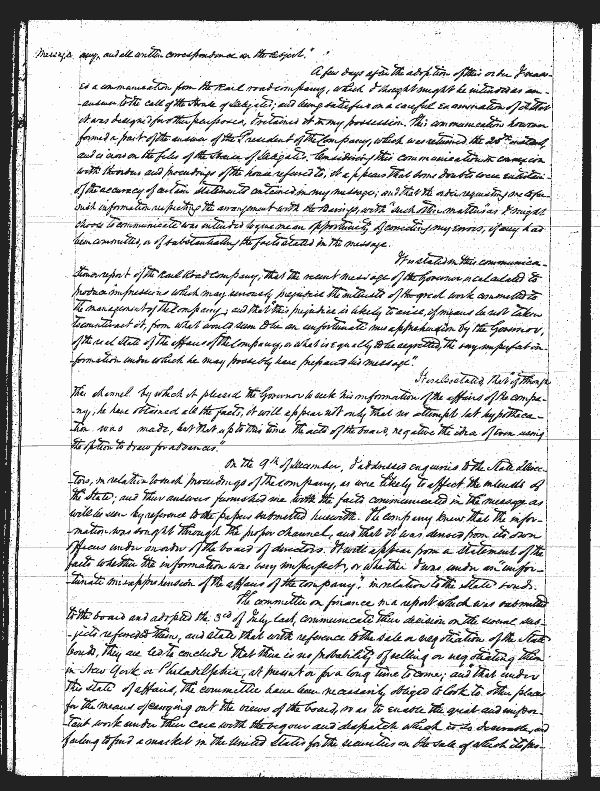 Message
any, and all written correspondence on the subject."
A few days after the adoption of this order I recei-
ved a communication from the Rail road company, which I thought might be intended as an
answer to the call of the House of Delegates; and being satisfied on a careful examination of it that
it was designed for other purposes, I retained it in my possession. This communication however
formed a part of the answer of the President of the Company, which was returned the 20th instant,
and is now on the files of the House of Delegates. Considering this communication in connexion
with the order and proceedings of the house referred to, it appears that some doubts were entertained
of the accuracy of certain statements contained in my message; and that the order requesting me to fur-
nish information respecting the arrangement with the Barings, with "such other matters" as I might
choose to communicate was intended to give me an opportunity of correcting my errors, if any had
been committed, or of substantiating the facts stated in the message.
It is stated in this communica-
tion or report of the Rail Road Company, that the recent message of the Governor is calculated to
produce "impressions which may seriously prejudice the interests of the great work committed to
the management of the Company; and that "this prejudice is likely to arise, if means be not taken
to counteract it, from what would seem to be an unfortunate misapprehension by the Governor,
of the real state of the affairs of the Company, or what is equally to be regretted, the very imperfect in-
formation under which he may possibly have prepared his message."
It is also stated, that "if through
the channel by which it pleased the Governor to seek his information of the affairs of the compa-
ny, he had obtained all the facts, it will appear not only that no attempt at hypotheca-
tion was made, but that up to this time the acts of the board, negative the idea of even using
the option to draw for advances."
On the 9th of December, I addressed enquiries to the State direc-
tors, in relation to such proceedings of the company, as were likely to affect the interests of
the State; and their answers furnished me with the facts communicated in the message as
will be seen by reference to the papers submitted herewith. The company knew that the infor-
mation was sought through the proper channel, and that it was derived from its own
officers under an order of the board of directors. It will appear from a statement of the
facts whether the information was very imperfect, or whether I was under an "unfor-
tunate misapprehension of the affairs of the company," in relation to the State bonds.
The committee on finance in a report which was submitted
to the board and adopted the 3rd of July last, communicate their decision on the several sub-
jects referred to them, and state that with reference to the sale or negotiation of the State
bonds, they are led to conclude that there is no probability of selling or negotiating them
in New York or Philadelphia, at present or for a long time to come; and "that under
this state of affairs, the committee have been necessarily obliged to look to other places
for the means of carrying out the views of the board, so as to enable the great and impor-
tant work under their care with the vigour and despatch which is so desirable, and
failing to find a market in the United States for the securities on the sale of which its pro-